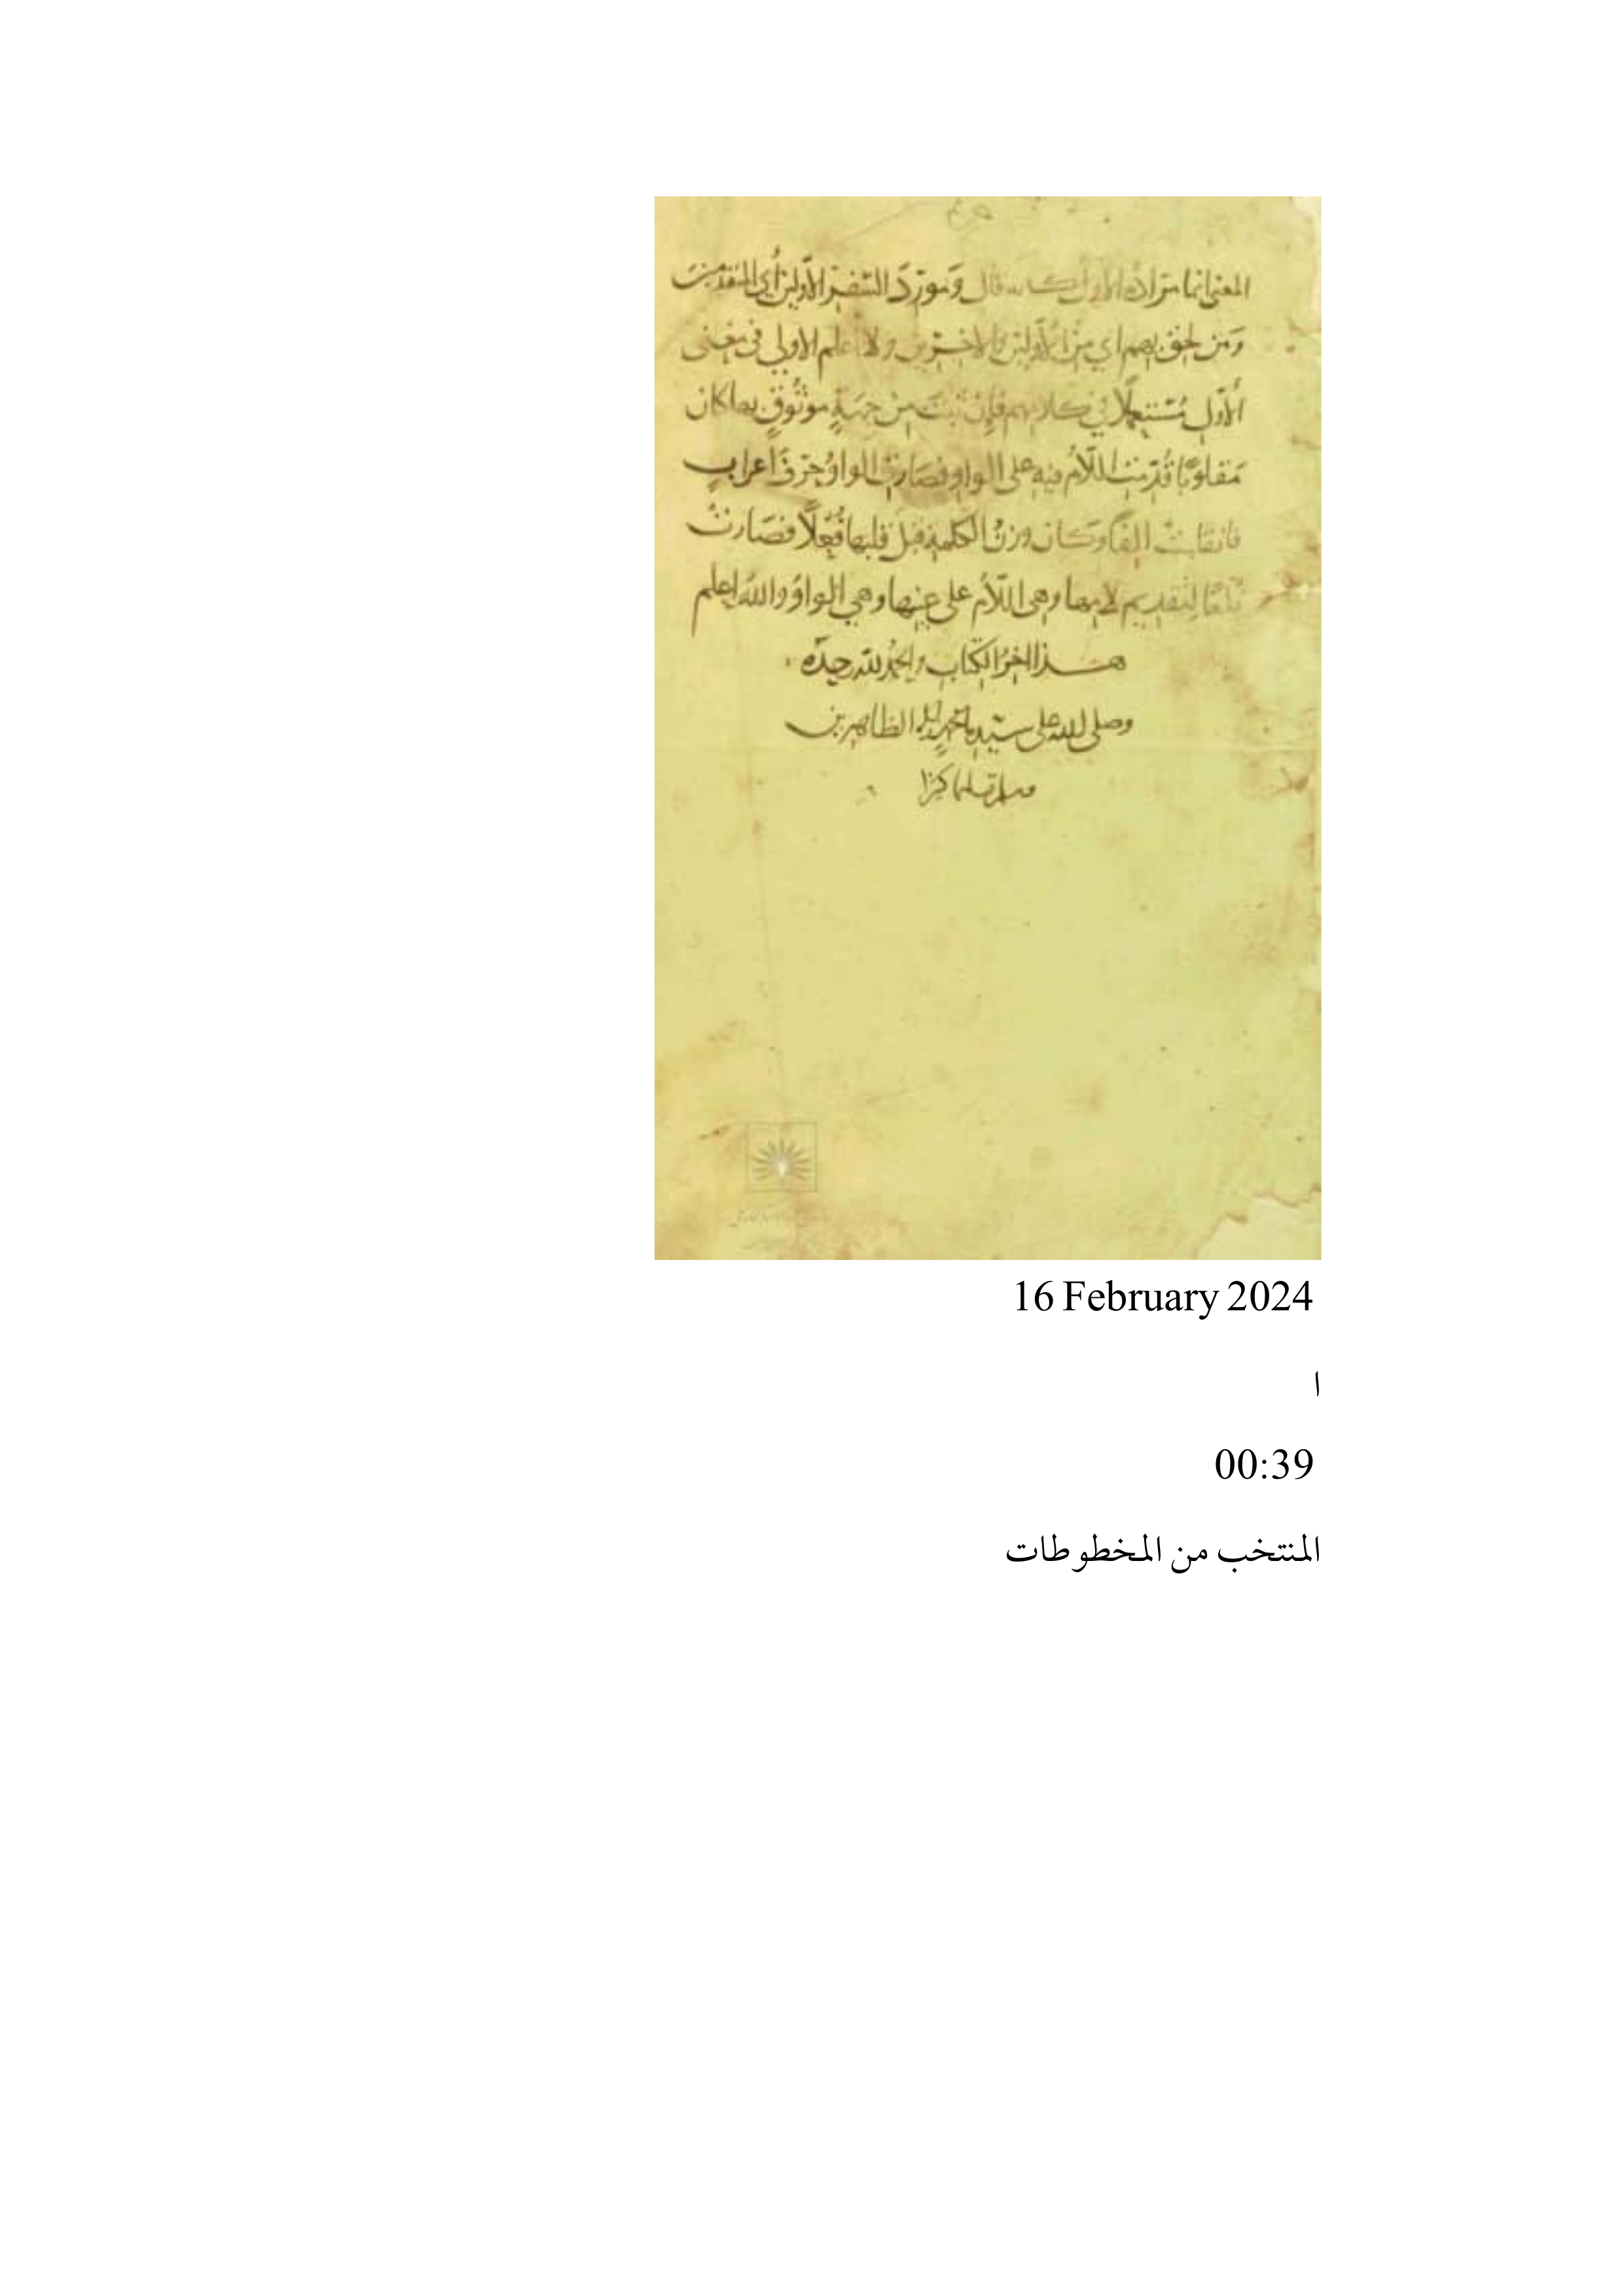 المعنى انما مراده الاول كانه قال ومورد السفر الأولين أي المتقدمين
ومن لحق بهم اي من الأولين والاخرين ولا أعلم الاولي في معنى
الأول مُستعملًا في كلامهم فإن ثبتَ من جهةٍ موثوقٍ بها كان
مَقلوبًا قُدّمت اللّامُ فيه على الواو فصارت الواوُ حرفَ اعرابٍ
فانقلبتْ الفًا وكان وزنُ الكلمة قبل قلبها فُعَلًا فصَارتْ
فُلَعًا لتقديم لامها وهي اللّامُ على عينها وهي الواوُ والله اعلم
هذا اخرُ الكتاب والحمد لله وحده
وصلى الله على سيدنا محمدٍ وآله الطاهرين
وسلم تسليما كثيرا
16 February 2024
ا
00:39
المنتخب من المخطوطات